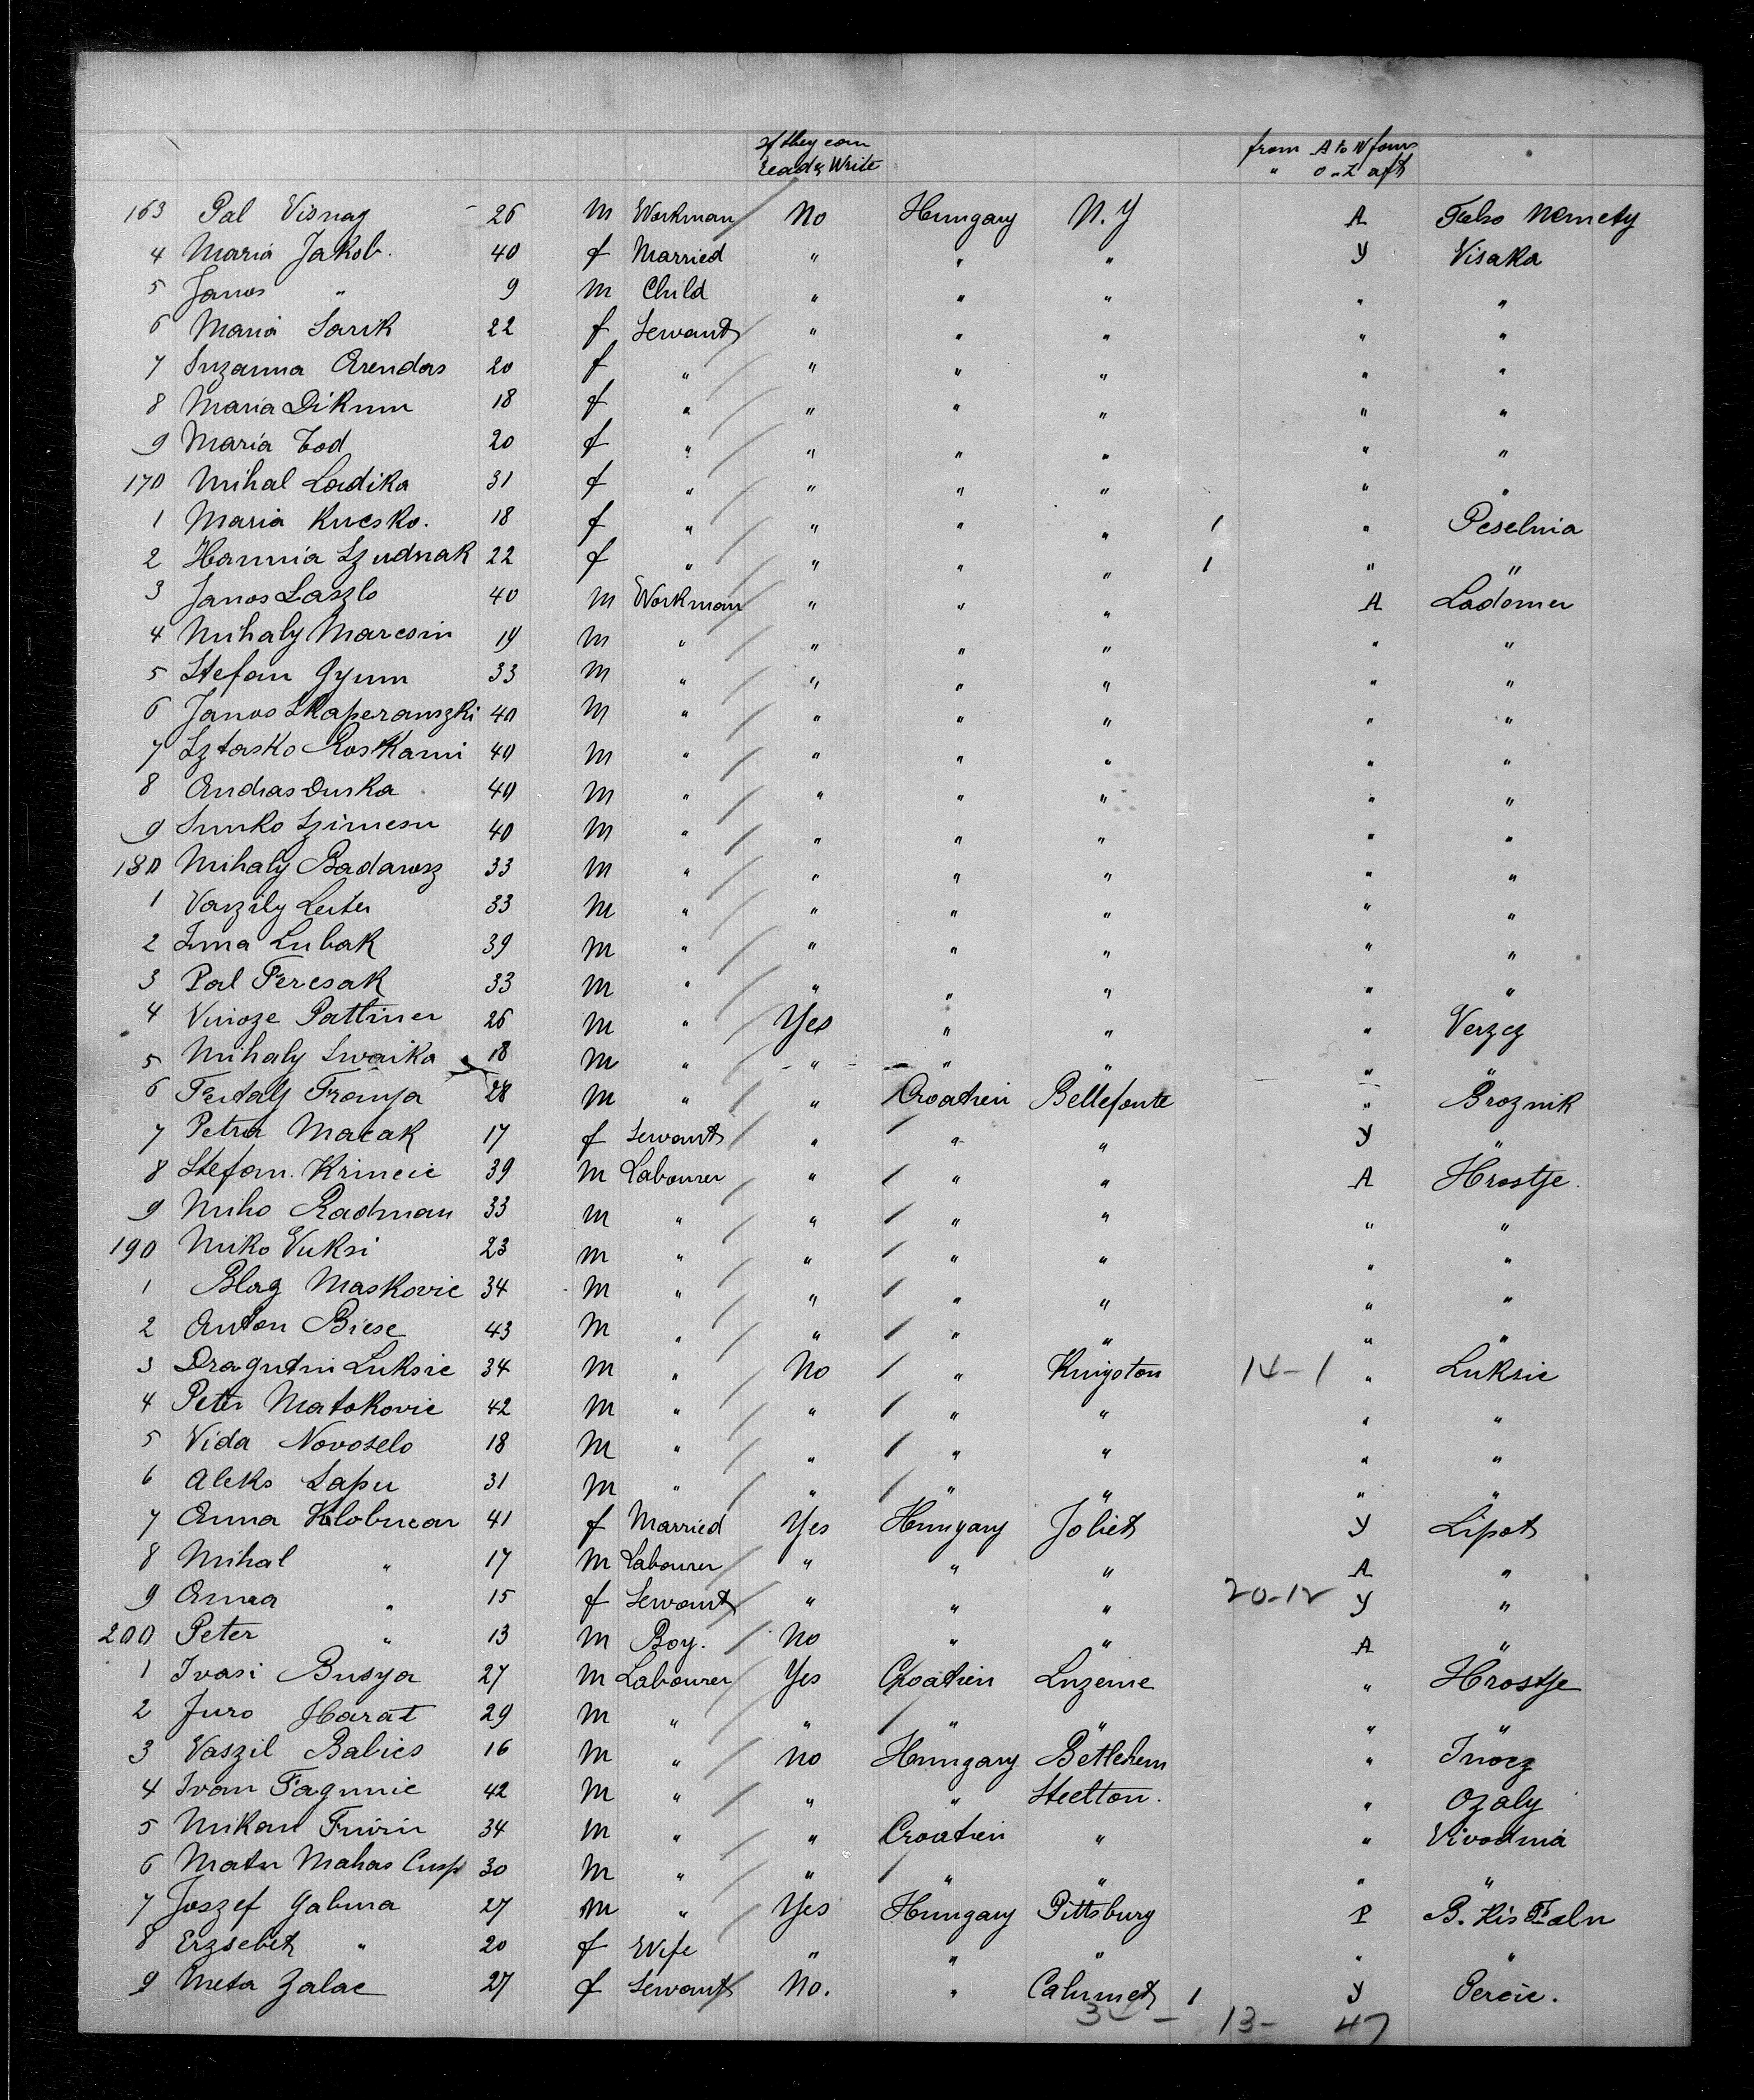 If they can from A to N fours
Read & Write " O " Z aft
163 Pal Visnay 26 m Workman No Hungary N.Y A Felso Nemety
4 Maria Jakob. 40 f Married " " " Y Visaka
5 Janos " 9 m Child " " " " "
6 Maria Sarik 22 f Servant " " " " "
7 Suzanna Arendas 20 f " " " " " "
8 Maria Dikum 18 f " " " " " "
9 Maria Tod 20 f " " " " " "
170 Mihal Ladika 31 f " " " " " "
1 Maria Kucsko. 18 f " " " " 1 " Peselnia
2 Hannia Szudnak 22 f " " " " 1 " "
3 Janos Laszlo 40 m Workman " " " A Ladomer
4 Mihaly Marcsin 19 m " " " " " "
5 Stefan Gyum 33 m " " " " " "
6 Janos Skaperanszki 40 m " " " " " "
7 Sztasko Roskami 40 m " " " " " "
8 Andras Duska 40 m " " " " " "
9 Simko Szimesn 40 m " " " " " "
180 Mihaly Badarosz 33 m " " " " " "
1 Vaszily Lester 33 m " " " " " "
2 Ima Lubak 39 m " " " " " "
3 Pal Feresak 33 m " " " " " "
4 Vinoze Pattiner 26 m " Yes " " " Verzcz
5 Mihaly Swaika 18 m " " " " " "
6 Fertaly Franja 28 m " " Croatien Bellefonte " Broznik
7 Petra Macak 17 f Servant " " " Y "
8 Stefan. Krincic 39 m Labourer " " " A Hrostje.
9 Miho Radman 33 m " " " " " "
190 Miko Vuksi 23 m " " " " " "
1 Blaz Maskovic 34 m " " " " " "
2 Anton Biese 43 m " " " " " "
3 Dragutin Luksic 34 m " No " Kingston 14-1 " Luksic
4 Peter Matokovic 42 m " " " " " "
5 Vida Novoselo 18 m " " " " " "
6 Aleks Sapu 31 m " " " " " "
7 Anna Klobucar 41 f Married Yes Hungary Joliet Y Lipot
8 Mihal " 17 m Labourer " " " A "
9 Anna " 15 f Servant " " " 20-12 Y "
200 Peter " 13 m Boy. No " " A "
1 Ivasi Busya 27 m Labourer Yes Croatien Luzerne " Hrostje
2 Juro Harat 29 m " " " " " "
3 Vaszil Babics 16 m " No Hungary Betlehem " Inocz
4 Ivan Fagunic 42 m " " " Steelton. " Ozaly
5 Mikan Fririn 34 m " " Croatien " " Vivodina
6 Matn Mahas Cusp 30 m " " " " " "
7 Joszef Gabura 27 m " Yes Hungary Pittsburg P B. Kis Falu
8 Erzsebet " 20 f Wife " " " " "
9 Meta Zalac 27 f Servant No. " Calumet 1 Y Percic.
34 - 13 - 47